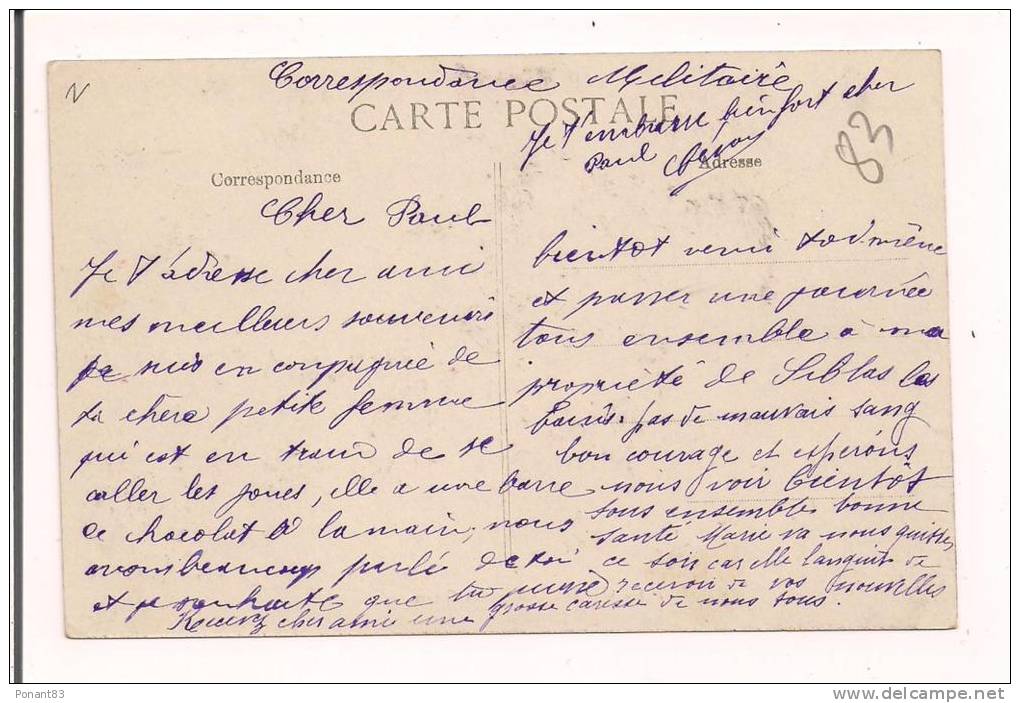 N
Correspondance Militaire
CARTE POSTALE
Je t'embrasse bien fort cher
Paul
83
Correspondance
Adresse
Cher Paul
Je t'adresse cher ami
mes meilleurs souvenirs
je suis en compagnie de
ta chère petite femme
qui est en train de se
caller les joues, elle a une barre
de chocolat à la main, nous
avons beaucoup parlé de toi
et je souhaite que tu puisse
bientot venir toi même
et passer une journée
tous ensemble à ma
propriété de Siblas les
pas de mauvais sang
bon courage et espérons
nous voir bientôt
tous ensemble bonne
santé Marie va nous quitter
ce soir car elle languit de
recevoir de vos nouvelles
Recevez cher ami une grosse caresse de nous tous.
Ponant83
www.delcampe.net